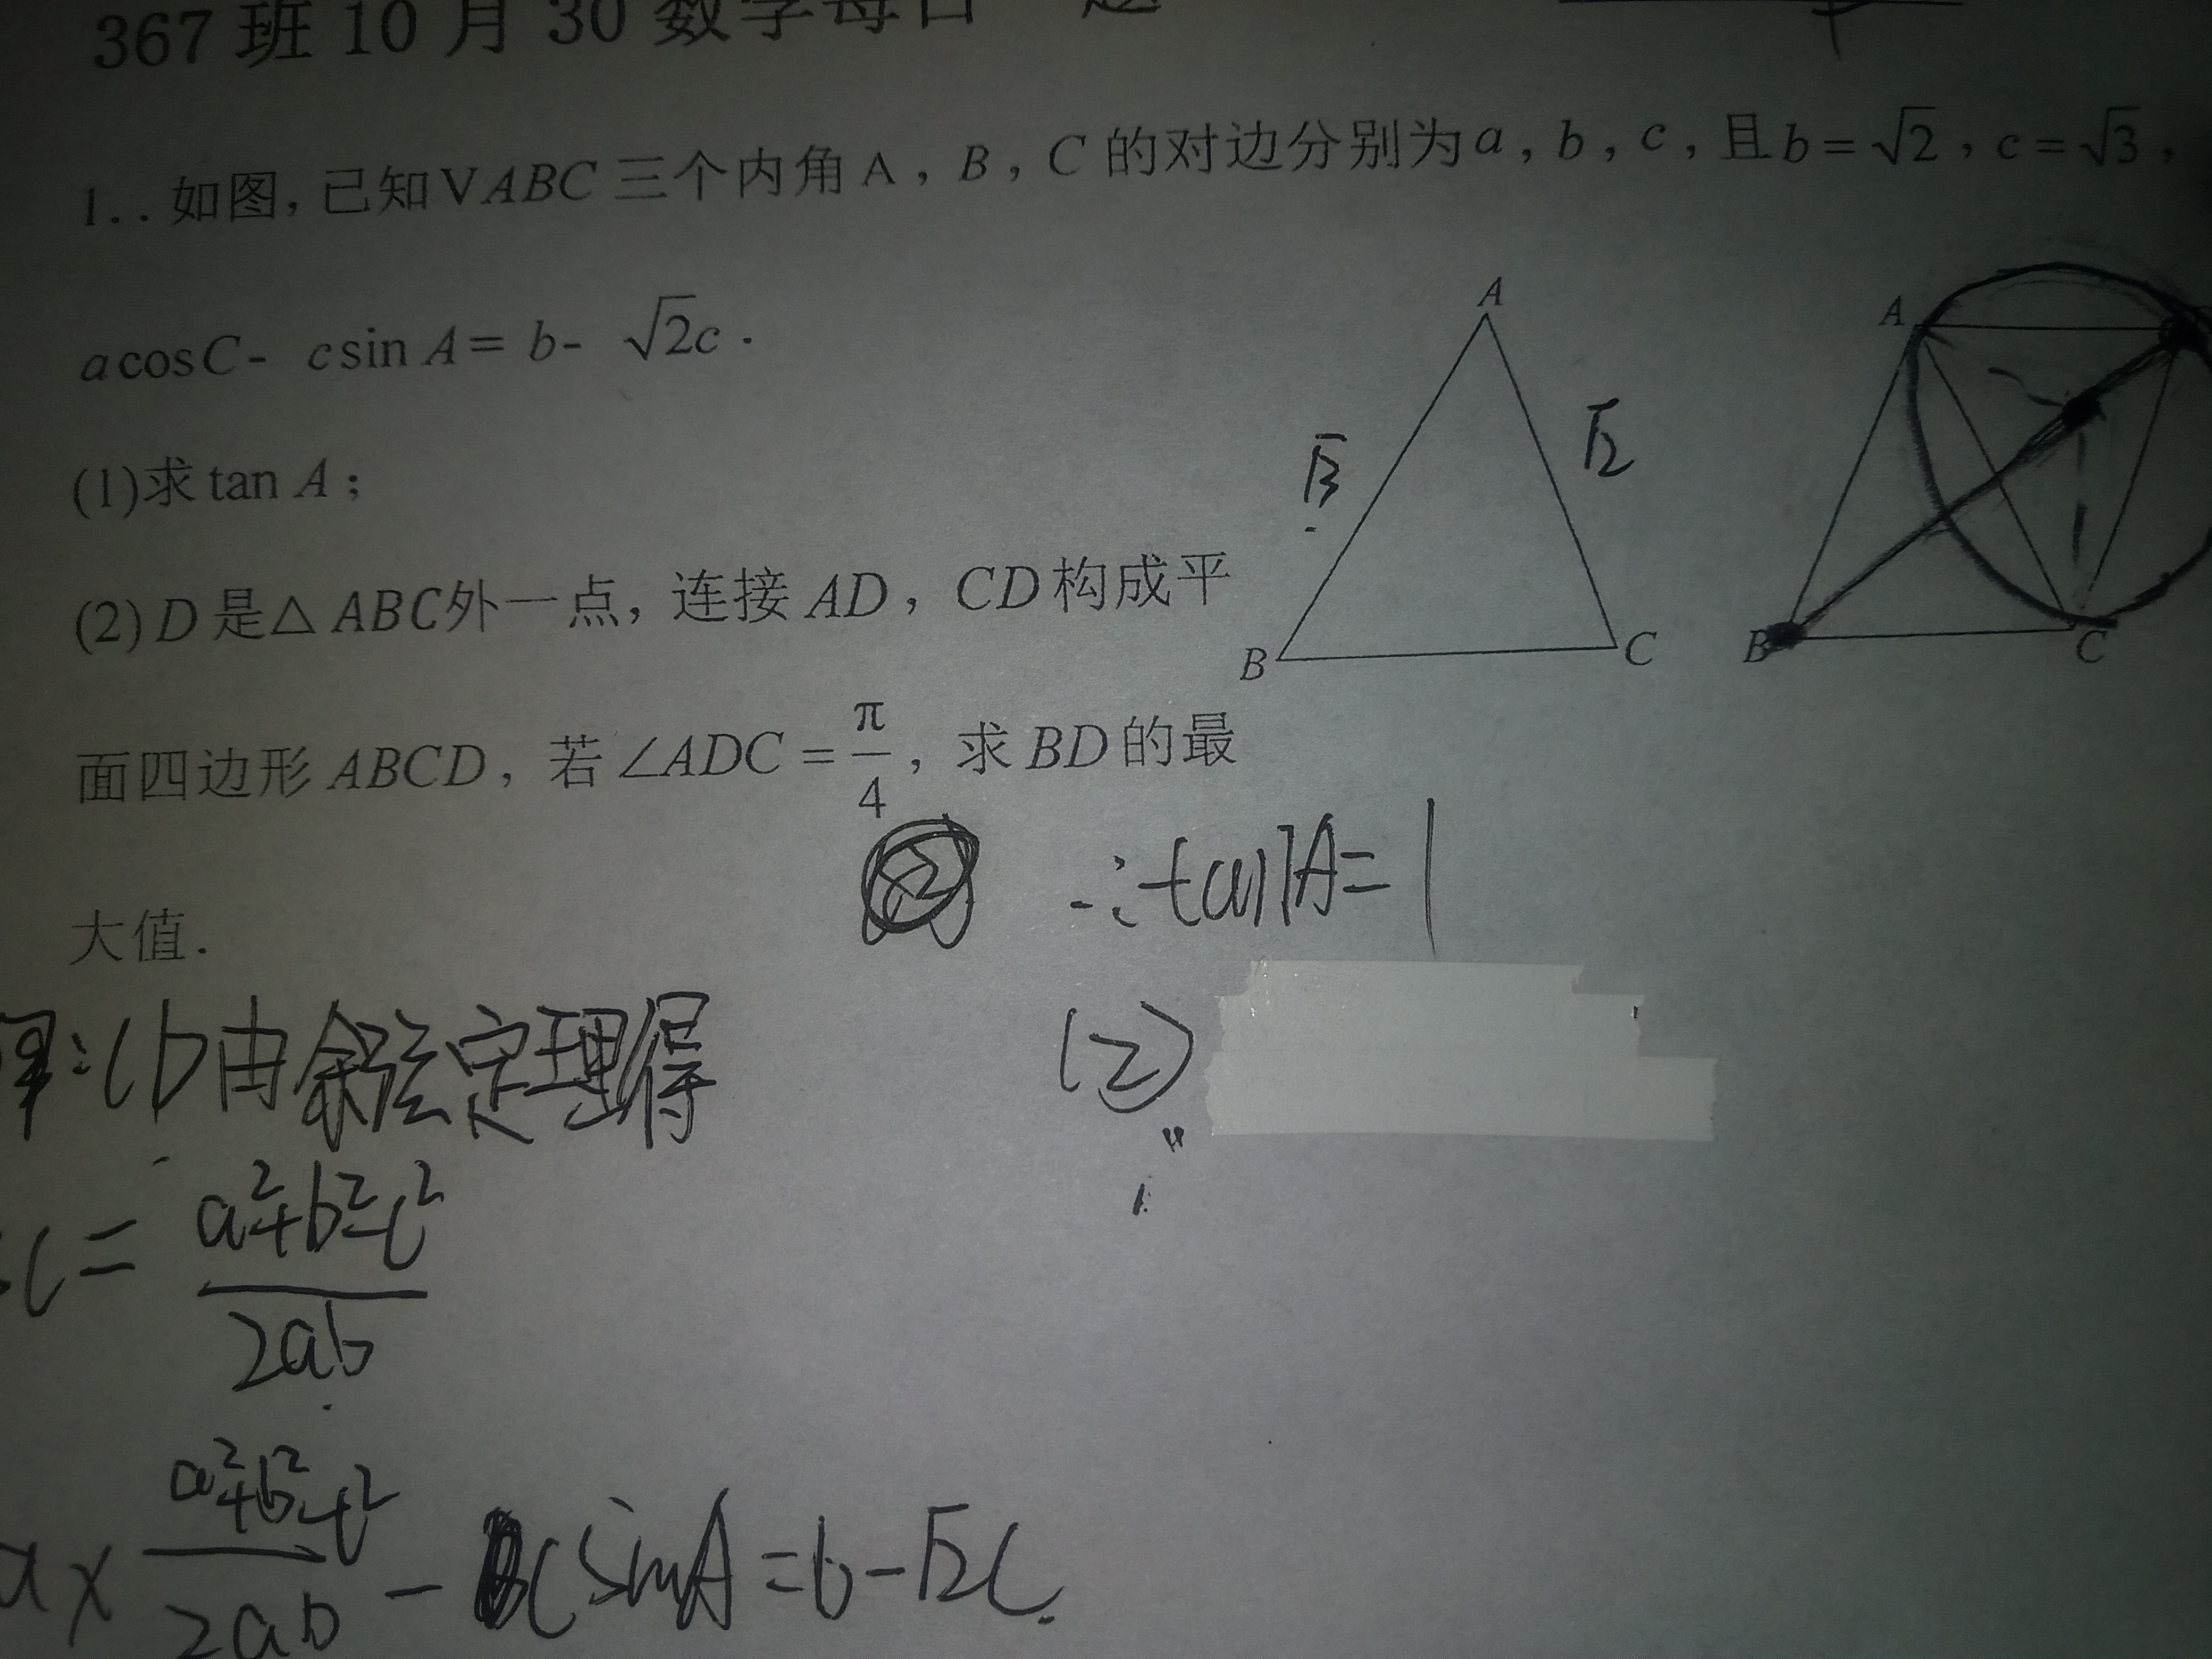 367 班 10 月 30 数学每日一题
1.. 如图, 已知 V ABC 三个内角 A , B , C 的对边分别为 a , b , c , 且 b = √2 , c = √3 ,
a cos C - c sin A = b - √2c .
(1)求 tan A ;
(2) D 是 △ ABC 外一点, 连接 AD , CD 构成平
面四边形 ABCD , 若 ∠ADC = π/4 , 求 BD 的最
大值 .
A
B
C
√3
√2
A
B
C
∴ tan A = 1
(2)
解: (1) 由余弦定理得
C = a²+b²-c² / 2ab
a × a²+b²-c² / 2ab - c sin A = b - √2c